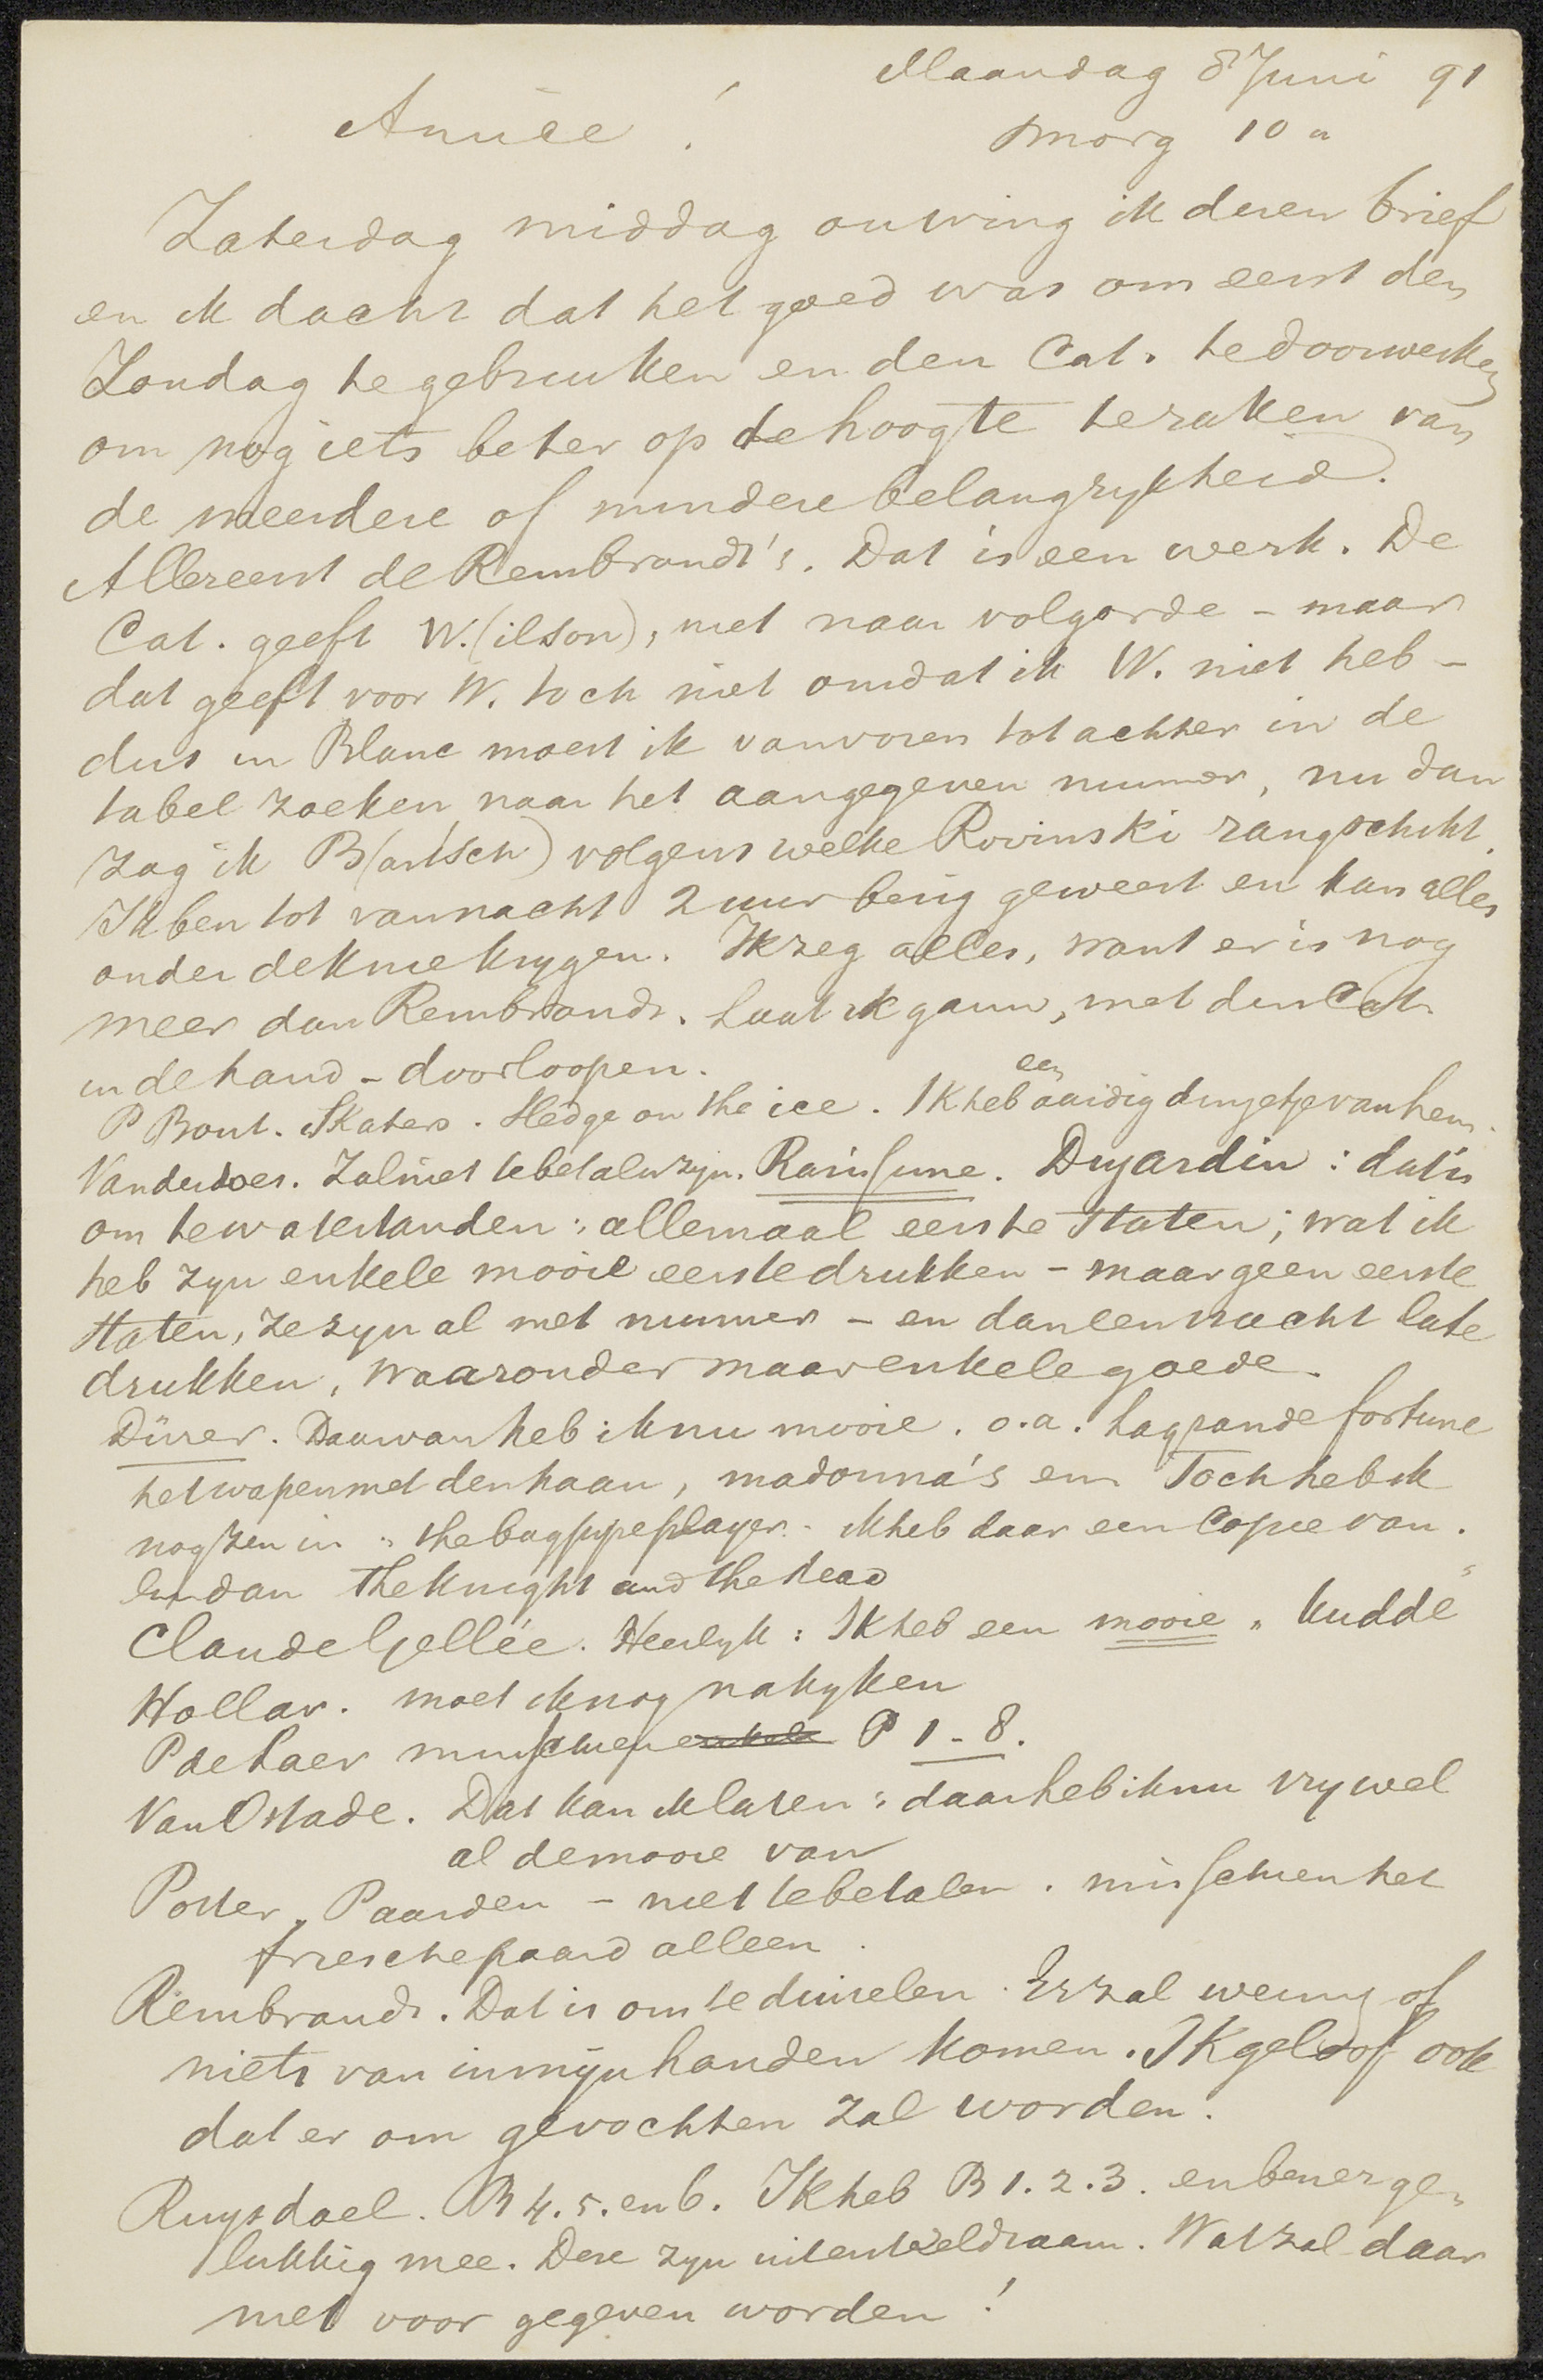 Maandag 8 Juni 91
Amice! morg 10 u
Zaterdag middag ontving ik dezen brief
en ik dacht dat het goed was om eerst den
Zondag te gebruiken en den Cat. te doorwerken
om nog iets beter op de hoogte te raken van
de meerdere of mindere belangrykheid.
Allereerst de Rembrandt's. Dat is een werk. De
Cat. geeft W.(ilson), niet naar volgorde - maar
dat geeft voor W. toch niet omdat ik W. niet heb -
dus in Blanc moest ik van voren tot achter in de
tabel zoeken naar het aangegeven nummer, nu dan
zag ik B(artsch) volgens welke Rovinski rangschikt.
Ik ben tot vannacht 2 uur bezig geweest en kan alles
onder de knie krygen. Ik zeg alles, want er is nog
meer dan Rembrandt. Laat ik gaan, met den Cat.
in de hand - doorloopen.
P Bout. Skaters. Sledge on the ice. Ik heb een aaidig dingetje van hem.
Van der Does. Zal niet te betalen zyn. Rarissime. Dujardin: dat is
om te watertanden: allemaal eerste staten; wat ik
heb zyn enkele mooie eerste drukken - maar geen eerste
staten, ze zyn al met nummer - en dan een vracht late
drukken, waaronder maar enkele goede.
Dürer. Daarvan heb ik nu mooie. o.a. la grande fortune
het wapen met den haan, madonna's enz Toch heb ik
nog zen in „the bagpipeplayer. - Ik heb daar een Copie van.
En dan the Knight and the dead
Claude Gellée. Heerlyk: Ik heb een mooie „kudde"
Hollar. moet ik nog nakyken
P de Laer misschien enkele P 1 - 8.
Van Ostade. Dat kan ik laten: daar heb ik nu vry wel
al de mooie van
Potter „Paarden - niet te betalen. misschien het
friesche paard alleen.
Rembrandt. Dat is om te duizelen. Er zal weinig of
niets van in mijn handen komen. Ik geloof ook
dat er om gevochten zal worden.
Ruysdael. B 4. 5. en 6. Ik heb B 1. 2. 3. en ben er ge-
lukkig mee. Deze zyn uiterst zeldzaam. Wat zal daar
niet voor gegeven worden!